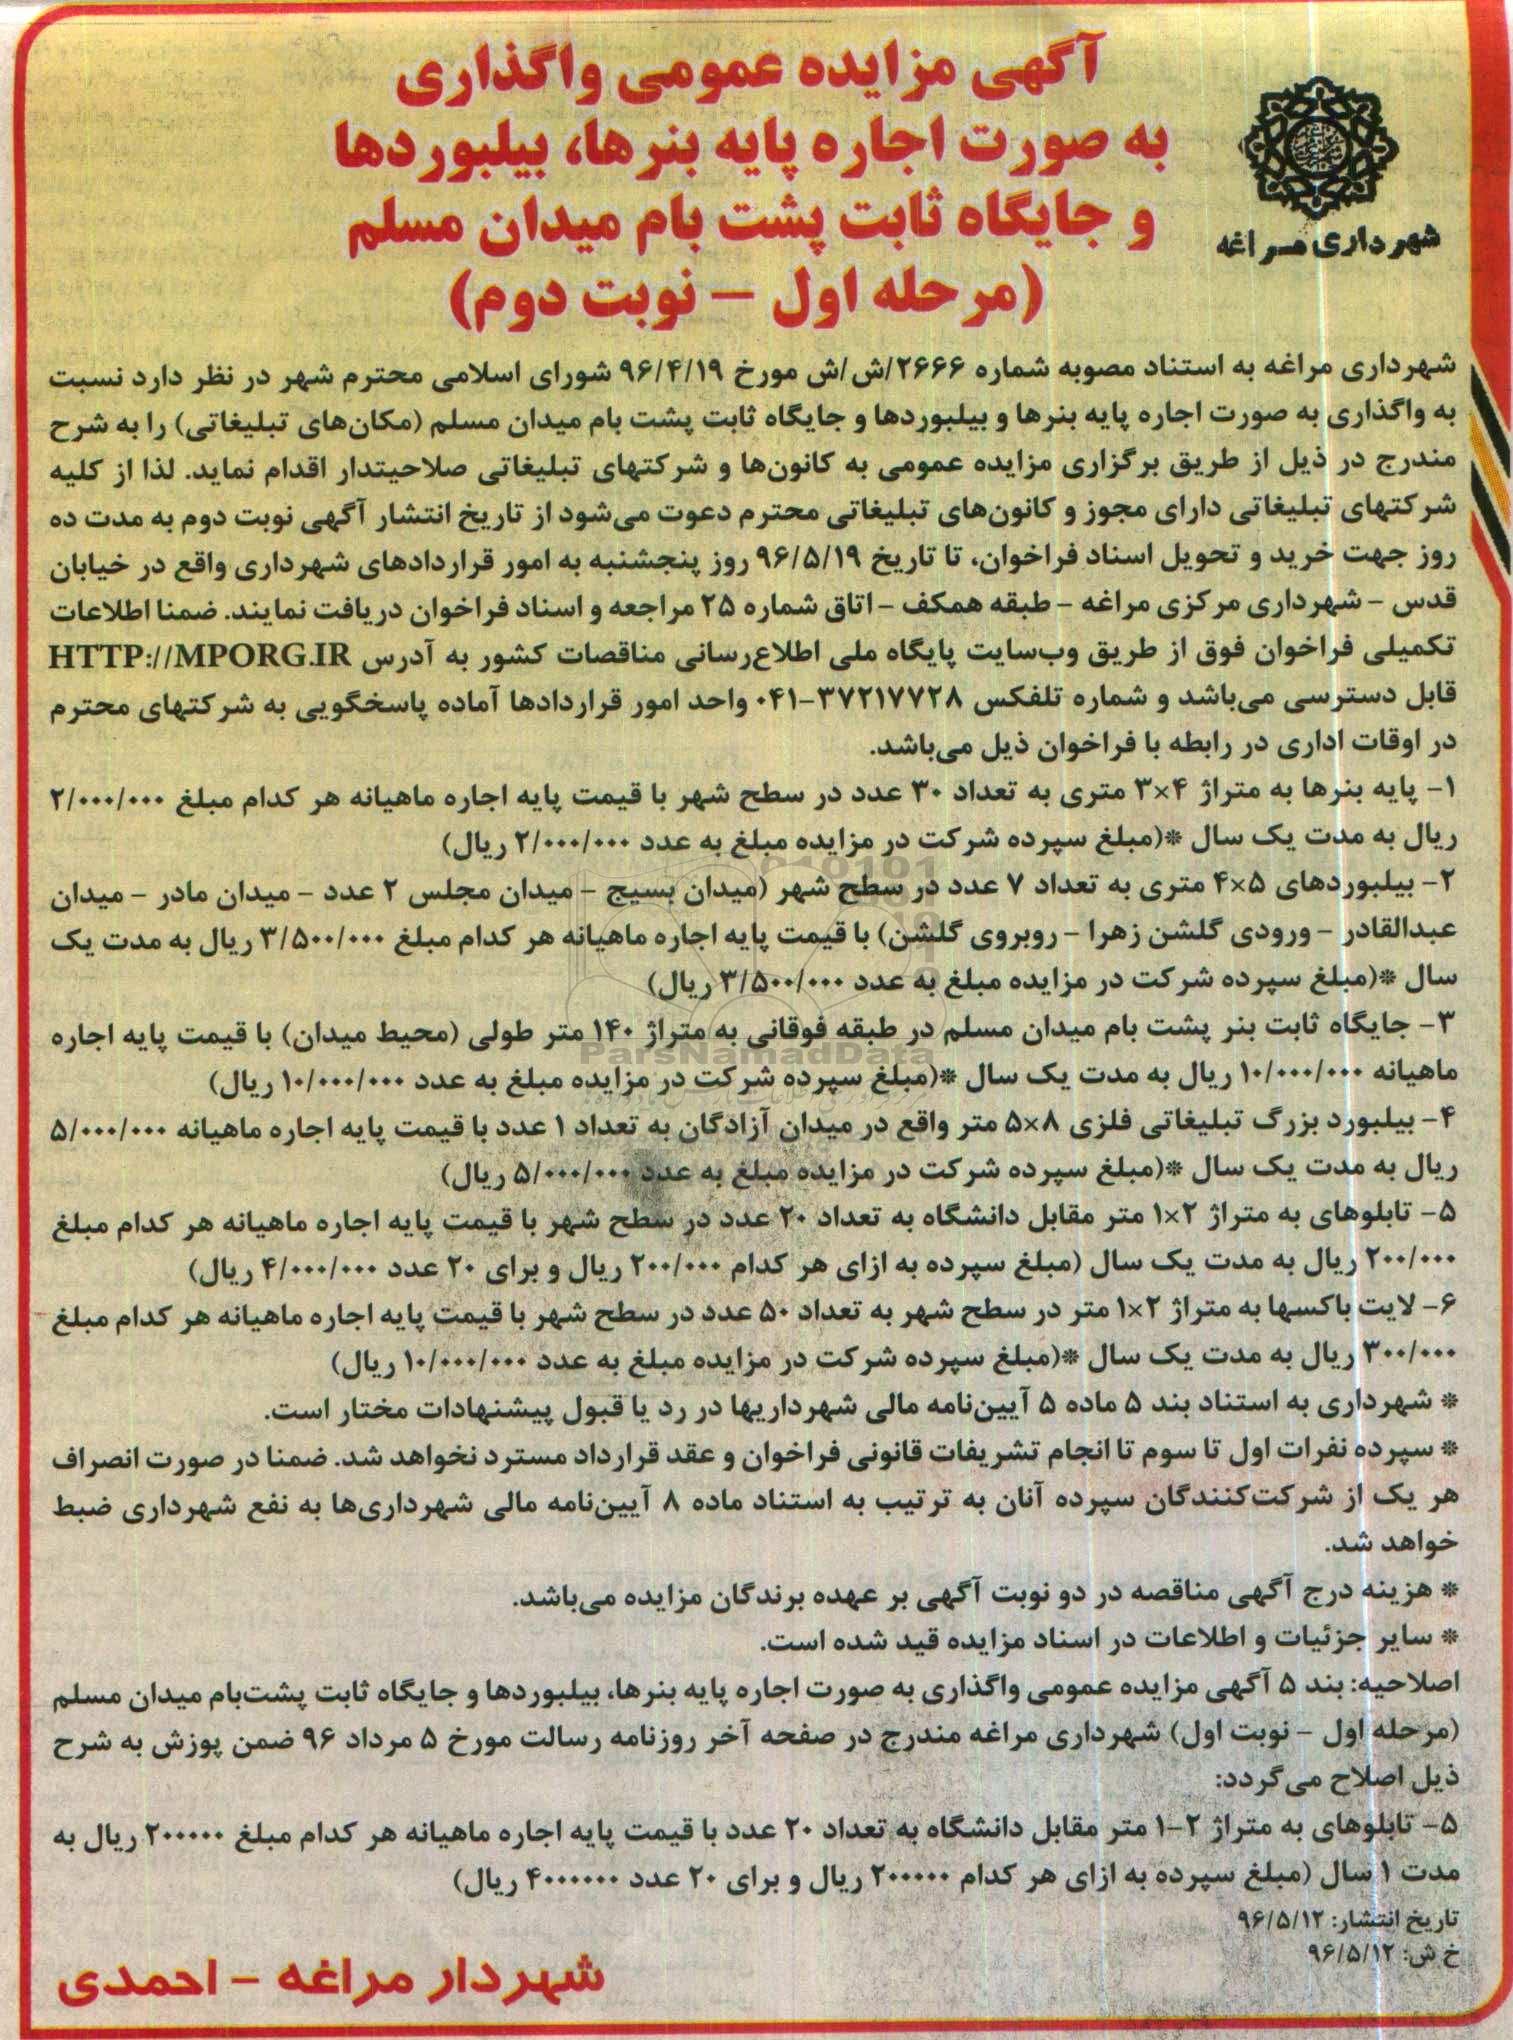 آگهی مزایده عمومی واگذاری
به صورت اجاره پایه بنرها، بیلبوردها
و جایگاه ثابت پشت بام میدان مسلم
(مرحله اول – نوبت دوم)
شهرداری مراغه
شهرداری مراغه به استناد مصوبه شماره ۲۶۶۶/ش/ش مورخ ۹۶/۴/۱۹ شورای اسلامی محترم شهر در نظر دارد نسبت
به واگذاری به صورت اجاره پایه بنرها و بیلبوردها و جایگاه ثابت پشت بام میدان مسلم (مکان‌های تبلیغاتی) را به شرح
مندرج در ذیل از طریق برگزاری مزایده عمومی به کانون‌ها و شرکتهای تبلیغاتی صلاحیتدار اقدام نماید. لذا از کلیه
شرکتهای تبلیغاتی دارای مجوز و کانون‌های تبلیغاتی محترم دعوت می‌شود از تاریخ انتشار آگهی نوبت دوم به مدت ده
روز جهت خرید و تحویل اسناد فراخوان، تا تاریخ ۹۶/۵/۱۹ روز پنجشنبه به امور قراردادهای شهرداری واقع در خیابان
قدس – شهرداری مرکزی مراغه – طبقه همکف – اتاق شماره ۲۵ مراجعه و اسناد فراخوان دریافت نمایند. ضمنا اطلاعات
تکمیلی فراخوان فوق از طریق وب‌سایت پایگاه ملی اطلاع‌رسانی مناقصات کشور به آدرس HTTP://MPORG.IR
قابل دسترسی می‌باشد و شماره تلفکس ۳۷۲۱۷۷۲۸-۰۴۱ واحد امور قراردادها آماده پاسخگویی به شرکتهای محترم
در اوقات اداری در رابطه با فراخوان ذیل می‌باشد.
۱- پایه بنرها به متراژ ۴×۳ متری به تعداد ۳۰ عدد در سطح شهر با قیمت پایه اجاره ماهیانه هر کدام مبلغ ۲/۰۰۰/۰۰۰
ریال به مدت یک سال *(مبلغ سپرده شرکت در مزایده مبلغ به عدد ۲/۰۰۰/۰۰۰ ریال)
۲- بیلبوردهای ۵×۴ متری به تعداد ۷ عدد در سطح شهر (میدان بسیج – میدان مجلس ۲ عدد – میدان مادر – میدان
عبدالقادر – ورودی گلشن زهرا – روبروی گلشن) با قیمت پایه اجاره ماهیانه هر کدام مبلغ ۳/۵۰۰/۰۰۰ ریال به مدت یک
سال *(مبلغ سپرده شرکت در مزایده مبلغ به عدد ۳/۵۰۰/۰۰۰ ریال)
۳- جایگاه ثابت بنر پشت بام میدان مسلم در طبقه فوقانی به متراژ ۱۴۰ متر طولی (محیط میدان) با قیمت پایه اجاره
ParsNamadData
ماهیانه ۱۰/۰۰۰/۰۰۰ ریال به مدت یک سال *(مبلغ سپرده شرکت در مزایده مبلغ به عدد ۱۰/۰۰۰/۰۰۰ ریال)
۴- بیلبورد بزرگ تبلیغاتی فلزی ۸×۵ متر واقع در میدان آزادگان به تعداد ۱ عدد با قیمت پایه اجاره ماهیانه ۵/۰۰۰/۰۰۰
ریال به مدت یک سال *(مبلغ سپرده شرکت در مزایده مبلغ به عدد ۵/۰۰۰/۰۰۰ ریال)
۵- تابلوهای به متراژ ۲×۱ متر مقابل دانشگاه به تعداد ۲۰ عدد در سطح شهر با قیمت پایه اجاره ماهیانه هر کدام مبلغ
۲۰۰/۰۰۰ ریال به مدت یک سال (مبلغ سپرده به ازای هر کدام ۲۰۰/۰۰۰ ریال و برای ۲۰ عدد ۴/۰۰۰/۰۰۰ ریال)
۶- لایت باکسها به متراژ ۲×۱ متر در سطح شهر به تعداد ۵۰ عدد در سطح شهر با قیمت پایه اجاره ماهیانه هر کدام مبلغ
۳۰۰/۰۰۰ ریال به مدت یک سال *(مبلغ سپرده شرکت در مزایده مبلغ به عدد ۱۰/۰۰۰/۰۰۰ ریال)
* شهرداری به استناد بند ۵ ماده ۵ آیین‌نامه مالی شهرداریها در رد یا قبول پیشنهادات مختار است.
* سپرده نفرات اول تا سوم تا انجام تشریفات قانونی فراخوان و عقد قرارداد مسترد نخواهد شد. ضمنا در صورت انصراف
هر یک از شرکت‌کنندگان سپرده آنان به ترتیب به استناد ماده ۸ آیین‌نامه مالی شهرداری‌ها به نفع شهرداری ضبط
خواهد شد.
* هزینه درج آگهی مناقصه در دو نوبت آگهی بر عهده برندگان مزایده می‌باشد.
* سایر جزئیات و اطلاعات در اسناد مزایده قید شده است.
اصلاحیه: بند ۵ آگهی مزایده عمومی واگذاری به صورت اجاره پایه بنرها، بیلبوردها و جایگاه ثابت پشت‌بام میدان مسلم
(مرحله اول – نوبت اول) شهرداری مراغه مندرج در صفحه آخر روزنامه رسالت مورخ ۵ مرداد ۹۶ ضمن پوزش به شرح
ذیل اصلاح می‌گردد:
۵- تابلوهای به متراژ ۲-۱ متر مقابل دانشگاه به تعداد ۲۰ عدد با قیمت پایه اجاره ماهیانه هر کدام مبلغ ۲۰۰۰۰۰ ریال به
مدت ۱ سال (مبلغ سپرده به ازای هر کدام ۲۰۰۰۰۰ ریال و برای ۲۰ عدد ۴۰۰۰۰۰۰ ریال)
تاریخ انتشار: ۹۶/۵/۱۲
خ ش: ۹۶/۵/۱۲
شهردار مراغه – احمدی